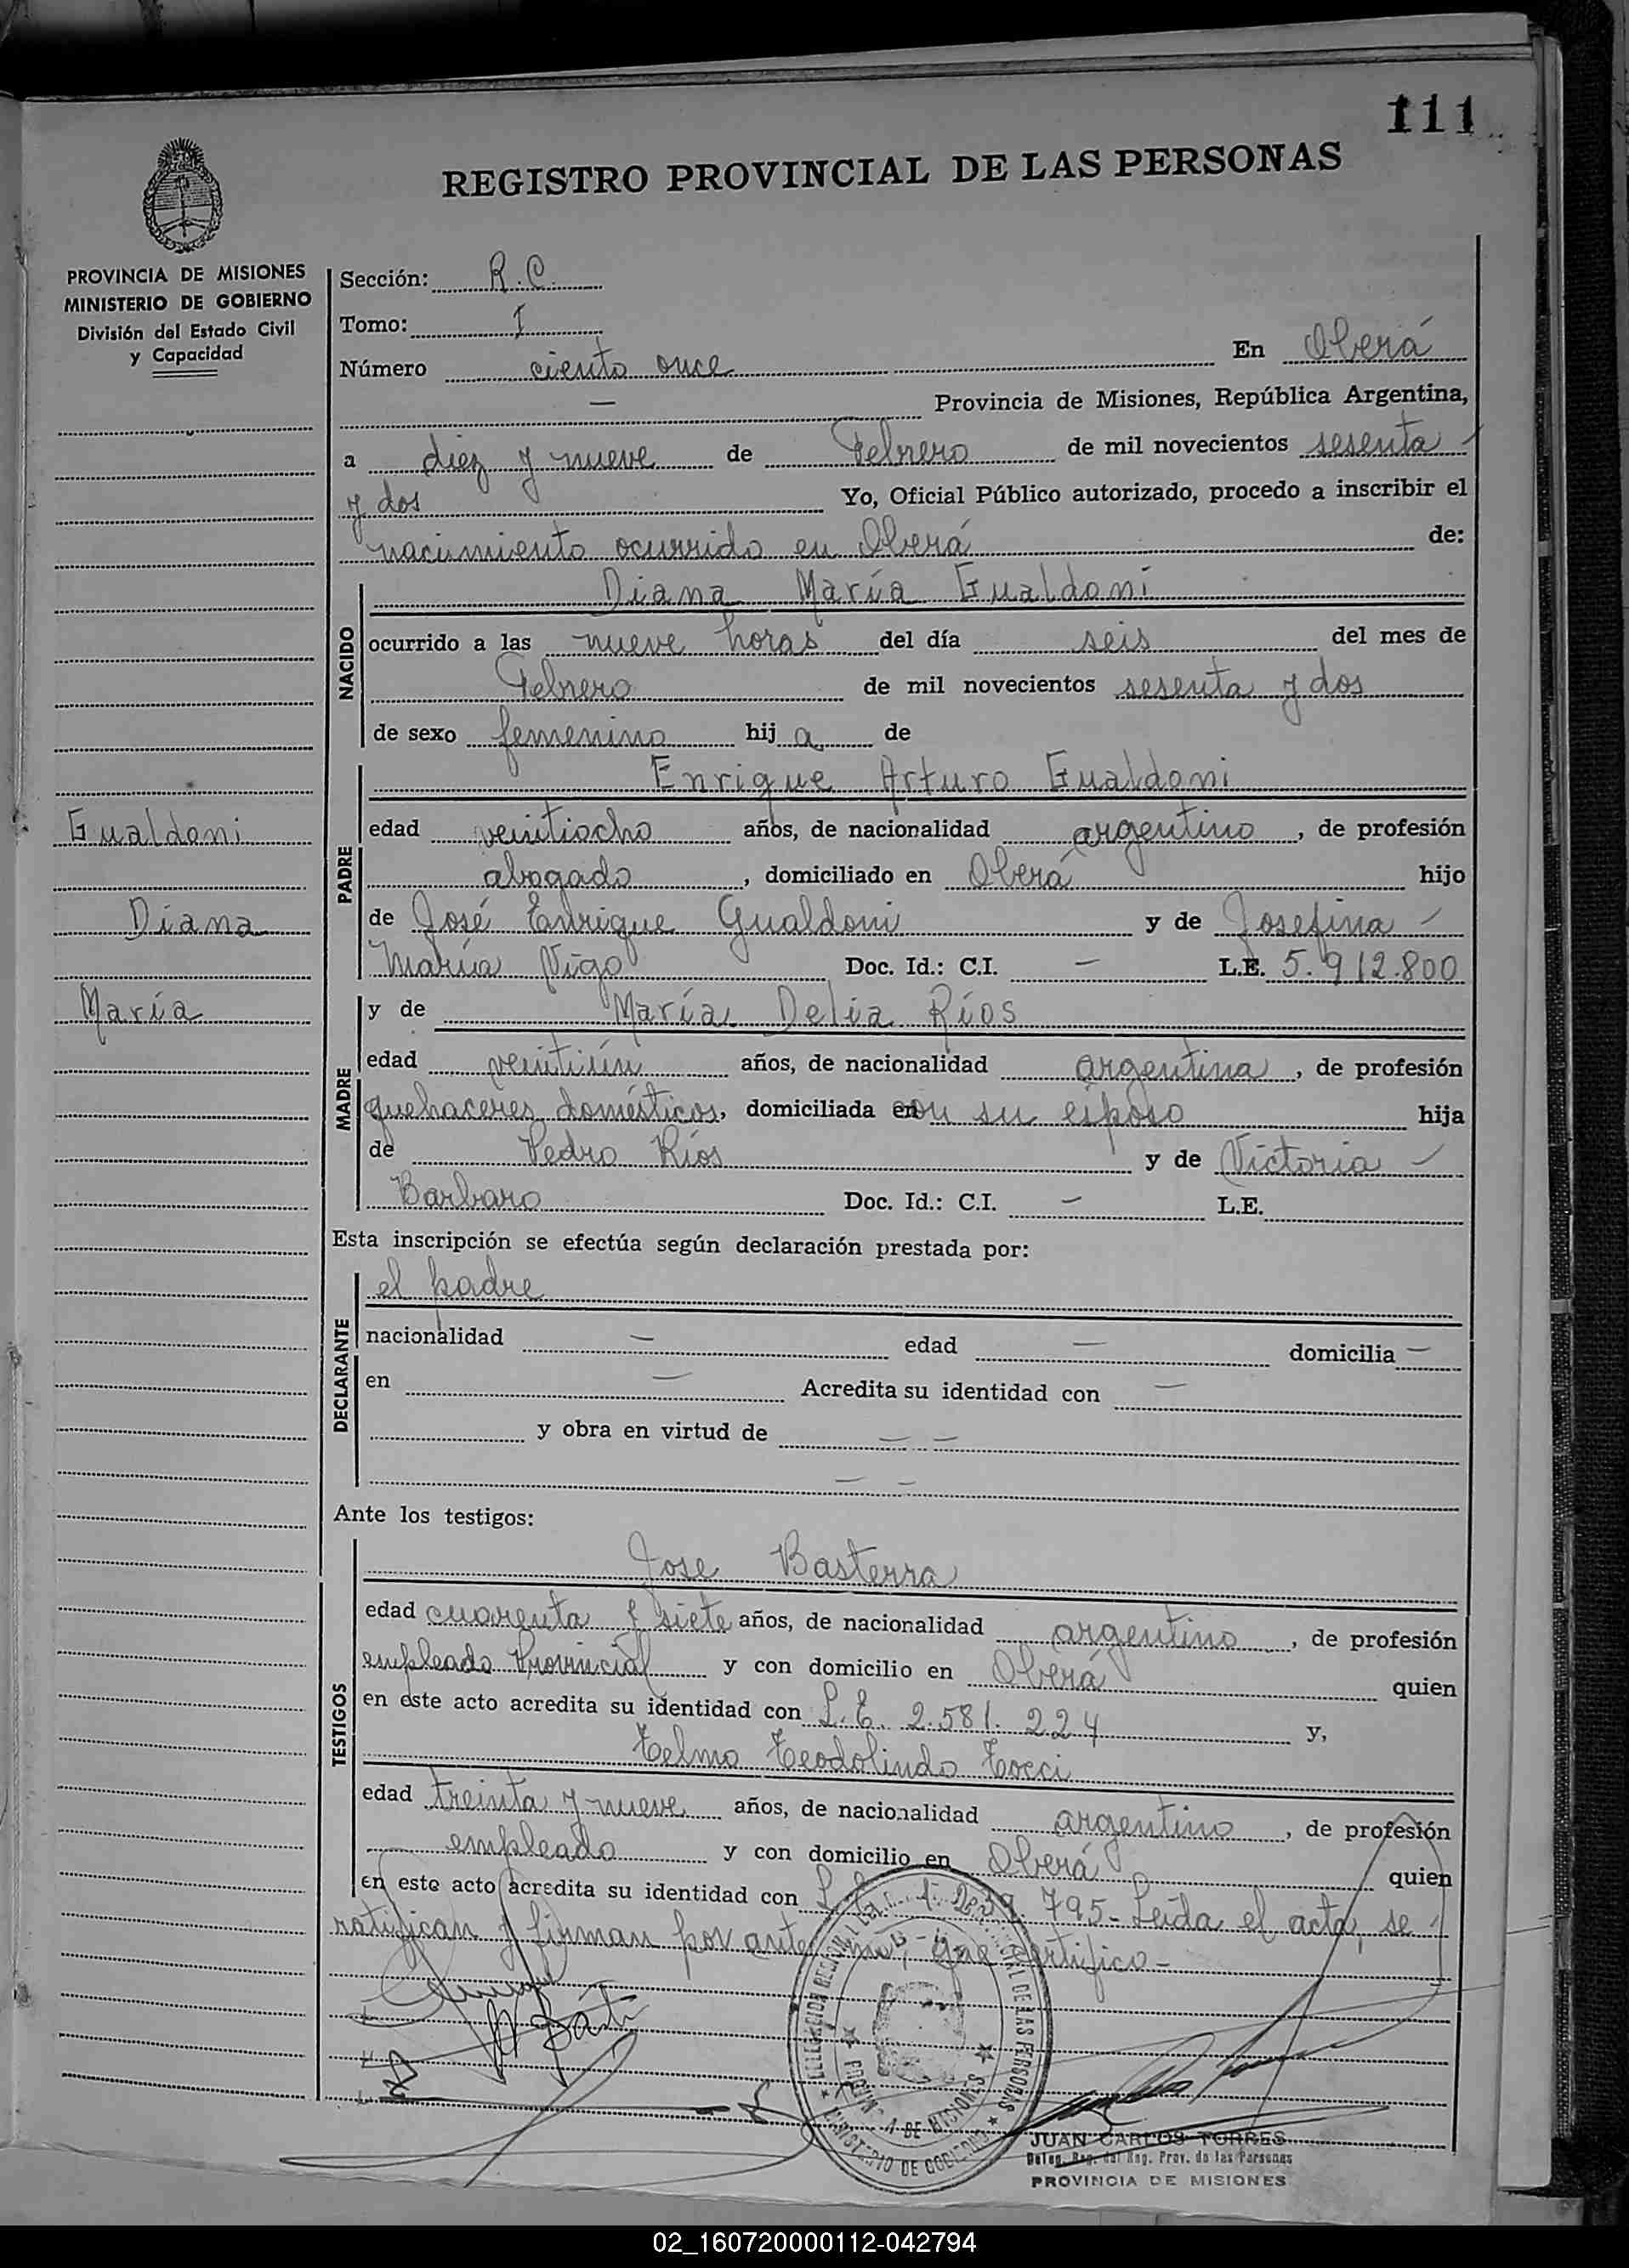 111
REGISTRO PROVINCIAL DE LAS PERSONAS
PROVINCIA DE MISIONES
MINISTERIO DE GOBIERNO
División del Estado Civil
y Capacidad
Gualdoni
Diana
María
Sección: R.C.
Tomo: I
Número ciento once En Oberá
— Provincia de Misiones, República Argentina,
a diez y nueve de Febrero de mil novecientos sesenta
y dos Yo, Oficial Público autorizado, procedo a inscribir el
nacimiento ocurrido en Oberá de:
NACIDO
Diana María Gualdoni
ocurrido a las nueve horas del día seis del mes de
Febrero de mil novecientos sesenta y dos
de sexo femenino hij a de
PADRE
Enrique Arturo Gualdoni
edad veintiocho años, de nacionalidad argentino, de profesión
abogado, domiciliado en Oberá hijo
de José Enrique Gualdoni y de Josefina
María Vigo Doc. Id.: C.I. — L.E. 5.912.800
MADRE
y de María Delia Ríos
edad veintiún años, de nacionalidad argentina, de profesión
quehaceres domésticos, domiciliada en con su esposo hija
de Pedro Ríos y de Victoria
Barbaro Doc. Id.: C.I. — L.E.
Esta inscripción se efectúa según declaración prestada por:
DECLARANTE
el padre
nacionalidad — edad — domicilia —
en — Acredita su identidad con —
y obra en virtud de — —
— —
Ante los testigos:
TESTIGOS
Jose Basterra
edad cuarenta y siete años, de nacionalidad argentino, de profesión
empleado Provincial y con domicilio en Oberá quien
en este acto acredita su identidad con L.E. 2.581.224 y,
Telmo Teodolindo Tocci
edad treinta y nueve años, de nacionalidad argentino, de profesión
empleado y con domicilio en Oberá quien
en este acto acredita su identidad con 795- Leída el acta, se
ratifican y firman por ante mi, que certifico-
PROVINCIA DE MISIONES
MINISTERIO DE GOBIERNO
JUAN CARLOS TORRES
Deleg. Reg. del Reg. Prov. de las Personas
PROVINCIA DE MISIONES
02_160720000112-042794